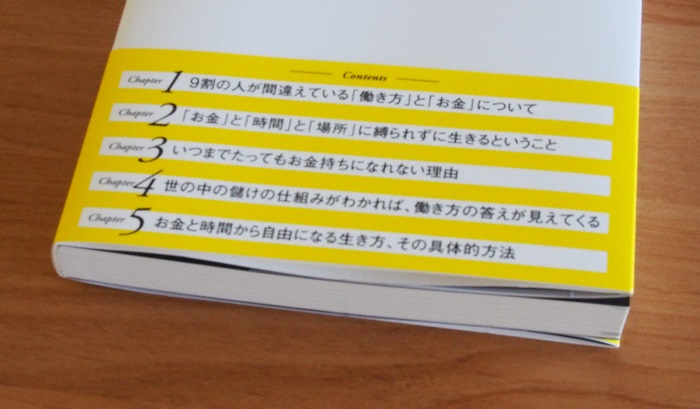 Contents
Chapter 1 9割の人が間違えている「働き方」と「お金」について
Chapter 2 「お金」と「時間」と「場所」に縛られずに生きるということ
Chapter 3 いつまでたってもお金持ちになれない理由
Chapter 4 世の中の儲けの仕組みがわかれば、働き方の答えが見えてくる
Chapter 5 お金と時間から自由になる生き方、その具体的方法